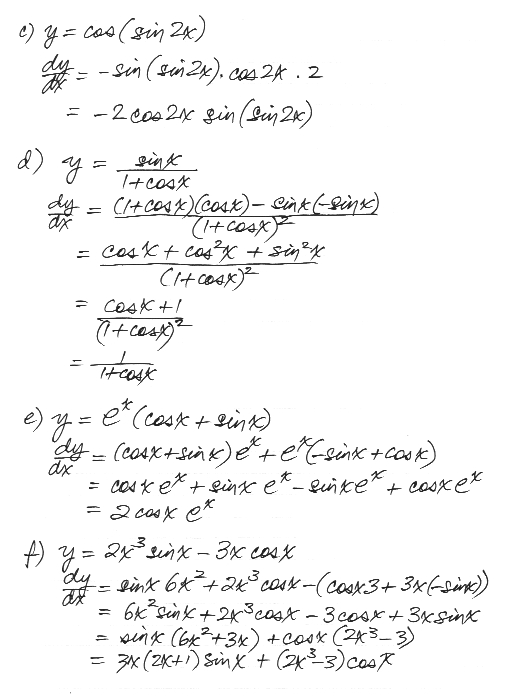 c) y = cos(sin 2x)
dy/dx = -sin(sin 2x). cos 2x . 2
= -2 cos 2x sin(sin 2x)
d) y = sin x / 1+cos x
dy/dx = (1+cos x)(cos x) - sin x (-sin x) / (1+cos x)²
= cos x + cos² x + sin² x / (1+cos x)²
= cos x + 1 / (1+cos x)²
= 1 / 1+cos x
e) y = eˣ (cos x + sin x)
dy/dx = (cos x + sin x) eˣ + eˣ (-sin x + cos x)
= cos x eˣ + sin x eˣ - sin x eˣ + cos x eˣ
= 2 cos x eˣ
f) y = 2x³ sin x - 3x cos x
dy/dx = sin x 6x² + 2x³ cos x - (cos x 3 + 3x (-sin x))
= 6x² sin x + 2x³ cos x - 3 cos x + 3x sin x
= sin x (6x² + 3x) + cos x (2x³ - 3)
= 3x (2x+1) sin x + (2x³ - 3) cos x